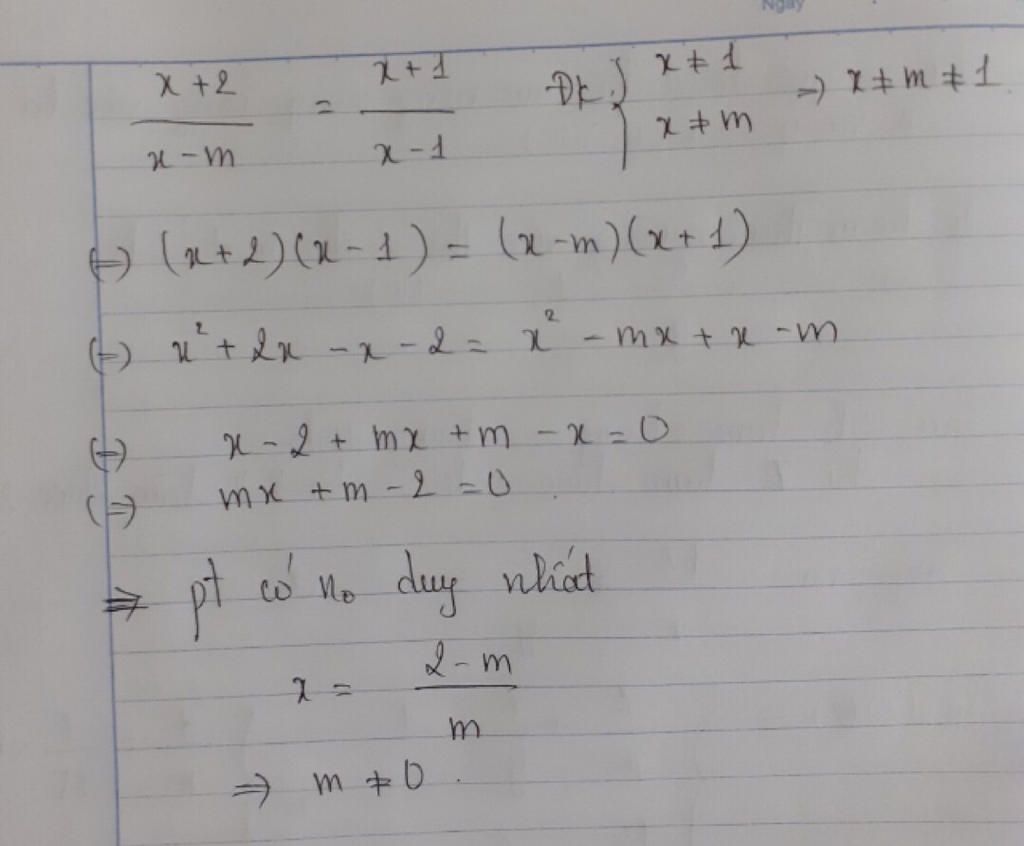 Ngày
x + 2 / x - m = x + 1 / x - 1 Đk { x ≠ 1 x ≠ m => x ≠ m ≠ 1
<=> (x + 2)(x - 1) = (x - m)(x + 1)
<=> x² + 2x - x - 2 = x² - mx + x - m
<=> x - 2 + mx + m - x = 0
<=> mx + m - 2 = 0
=> pt có no duy nhất
x = 2 - m / m
=> m ≠ 0.